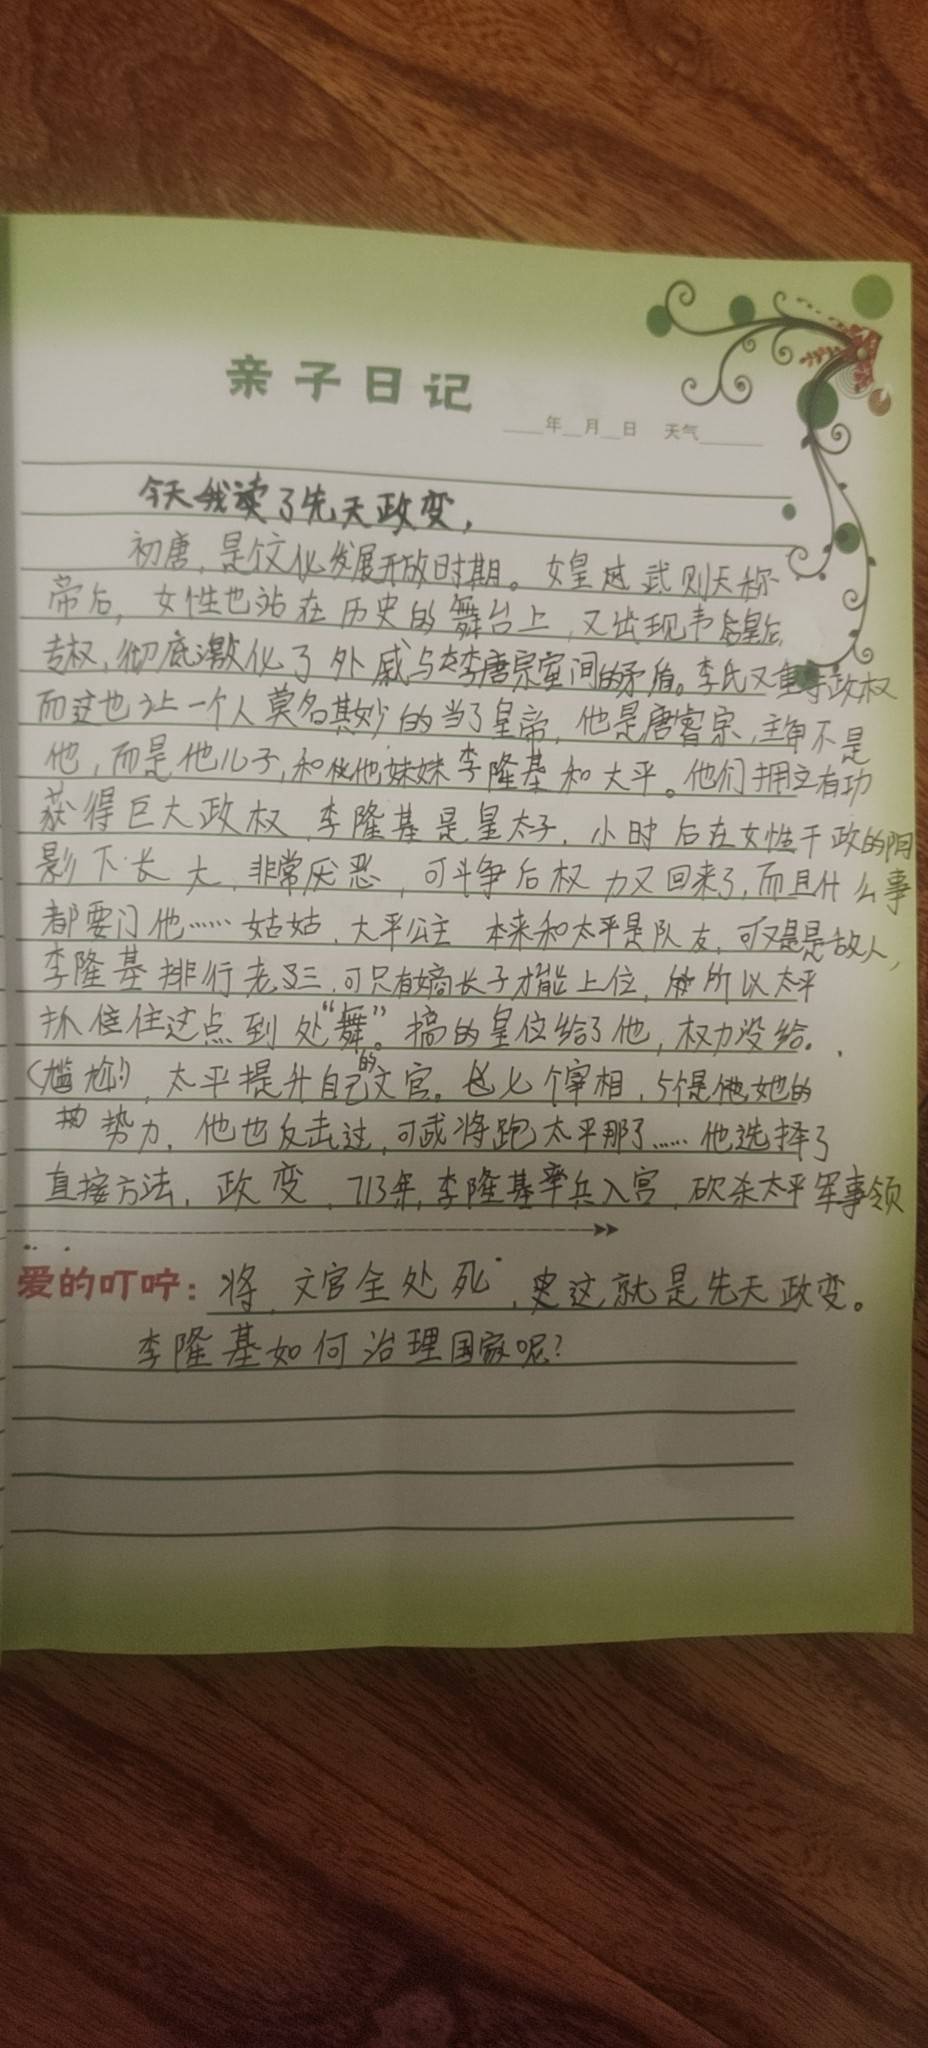 亲子日记
年 月 日 天气
今天我读了先天政变,
初唐,是个文化发展开放时期。女皇 武则天称
帝后,女性也站在历史的舞台上,又出现韦后皇后
专权,彻底激化了外戚与李唐宗室间的矛盾。李氏又重掌政权
而这也让一个人莫名其妙的当了皇帝,他是唐睿宗,主角不是
他,而是他儿子,和他妹妹李隆基和太平。他们拥立有功
获得巨大政权,李隆基是皇太子,小时后在女性干政的阴
影下长大,非常厌恶,可斗争后权力又回来了,而且什么事
都要问他……姑姑,太平公主 本来和太平是队友,可又是是敌人,
李隆基排行老三,可只有嫡长子才能上位,所以太平
抓住住这点到处“舞”。搞的皇位给了他,权力没给。
(尴尬),太平提升自己的文官。七个宰相,5个是她的
势力,他也反击过,可武将跑太平那了……他选择了
直接方法,政变,713年,李隆基率兵入宫,砍杀太平军事领
爱的叮咛:将,文官全处死,这就是先天政变。
李隆基如何治理国家呢?